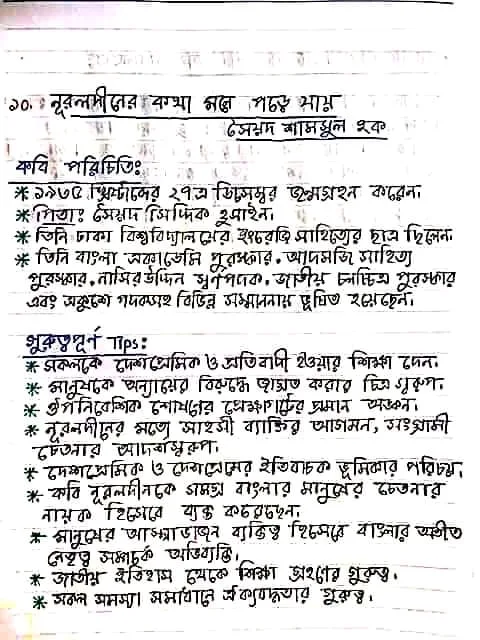 ১০. নূরলদীনের কথা মনে পড়ে যায়
সৈয়দ শামসুল হক
কবি পরিচিতিঃ
* ১৯৩৫ খ্রিস্টাব্দের ২৭এ ডিসেম্বর জন্মগ্রহন করেন।
* পিতাঃ সৈয়দ সিদ্দিক হুসাইন।
* তিনি ঢাকা বিশ্ববিদ্যালয়ের ইংরেজি সাহিত্যের ছাত্র ছিলেন।
* তিনি বাংলা একাডেমি পুরস্কার, আদমজি সাহিত্য
পুরস্কার, নাসিরউদ্দিন স্বর্ণপদক, জাতীয় চলচ্চিত্র পুরস্কার
এবং একুশে পদকসহ বিভিন্ন সম্মাননায় ভূষিত হয়েছেন।
গুরুত্বপূর্ণ Tips:
* সকলকে দেশপ্রেমিক ও প্রতিবাদী হওয়ার শিক্ষা দেন।
* মানুষকে অন্যায়ের বিরুদ্ধে জাগ্রত করার চিত্র স্বরূপ।
* ঔপনিবেশিক শোষণের প্রেক্ষাপটের প্রমান অঙ্কন।
* নূরলদীনের মতো সাহসী ব্যক্তির আগমন, সংগ্রামী
চেতনার আদর্শস্বরূপ।
* দেশপ্রেমিক ও দেশপ্রেমের ইতিবাচক ভূমিকার পরিচয়।
* কবি নূরলদীনকে সমগ্র বাংলার মানুষের চেতনার
নায়ক হিসেবে ব্যক্ত করেছেন।
* মানুষের আস্থাভাজন ব্যক্তিত্ব হিসেবে বাংলার অতীত
নেতৃত্ব সম্পর্কে অভিব্যক্তি।
* জাতীয় ইতিহাস থেকে শিক্ষা গ্রহণের গুরুত্ব।
* সকল সমস্যা সমাধানে ঐক্যবদ্ধতার গুরুত্ব।